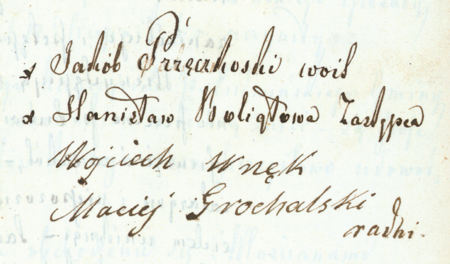 * Jakób Przęczkoski woit
* Stanisław Buligłowa Zastępca
Wojciech Wnęk
Maciej Grochalski
radni.